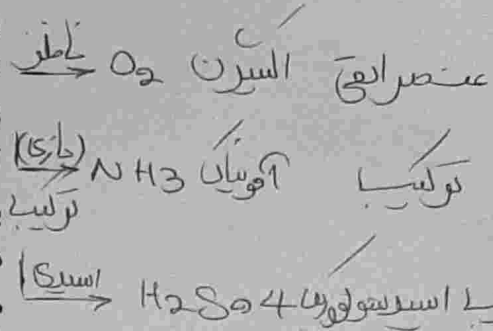 عنصر اتمی اکسیژن O2
ترکیب آمونیاک NH3 (بازی)
ترکیب
اسید سولفوریک H2So4 اسیدی